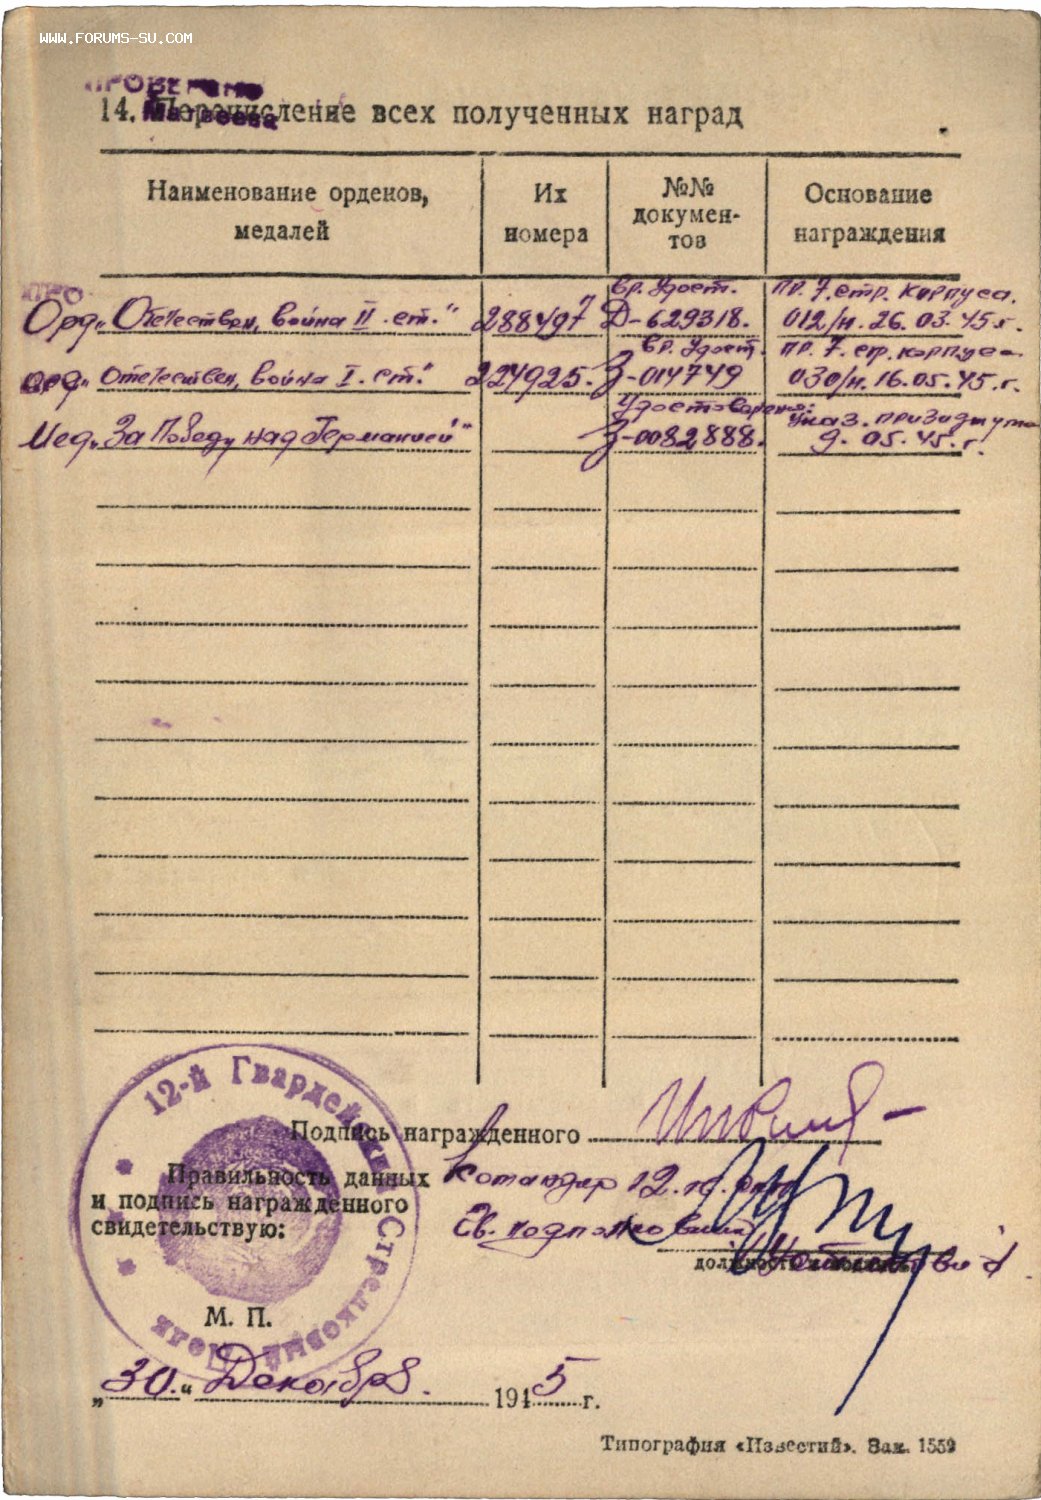 WWW.FORUMS-SU.COM
ПРОВЕРЕНО
Матвеева
14. Перечисление всех полученных наград
Наименование орденов, медалей
Их номера
№№ документов
Основание награждения
Вр. Удост. Пр. 7. стр. корпуса.
Орд. „Отечествен, война II. ст.“ 288497 Д-629318. 012/н. 26. 03. 45 г.
Вр. Удост. Пр. 7. стр. корпуса
Орд„ Отечествен, война I. ст.“ 224925. З-014749 030/н. 16. 05. 45. г.
Удостоверение: Указ. призидиума
Мед„ За Победу над Германией“ З-0082888. 9. 05. 45. г.
12-й Гвардейский Стрелковый Полк
Подпись награжденного
Правильность данных
и подпись награжденного
свидетельствую:
Командир 12. гв.
Гв. подполковник
должность
М. П.
„30.“ Декабря. 1945 г.
Типография «Известий». Зак. 1559